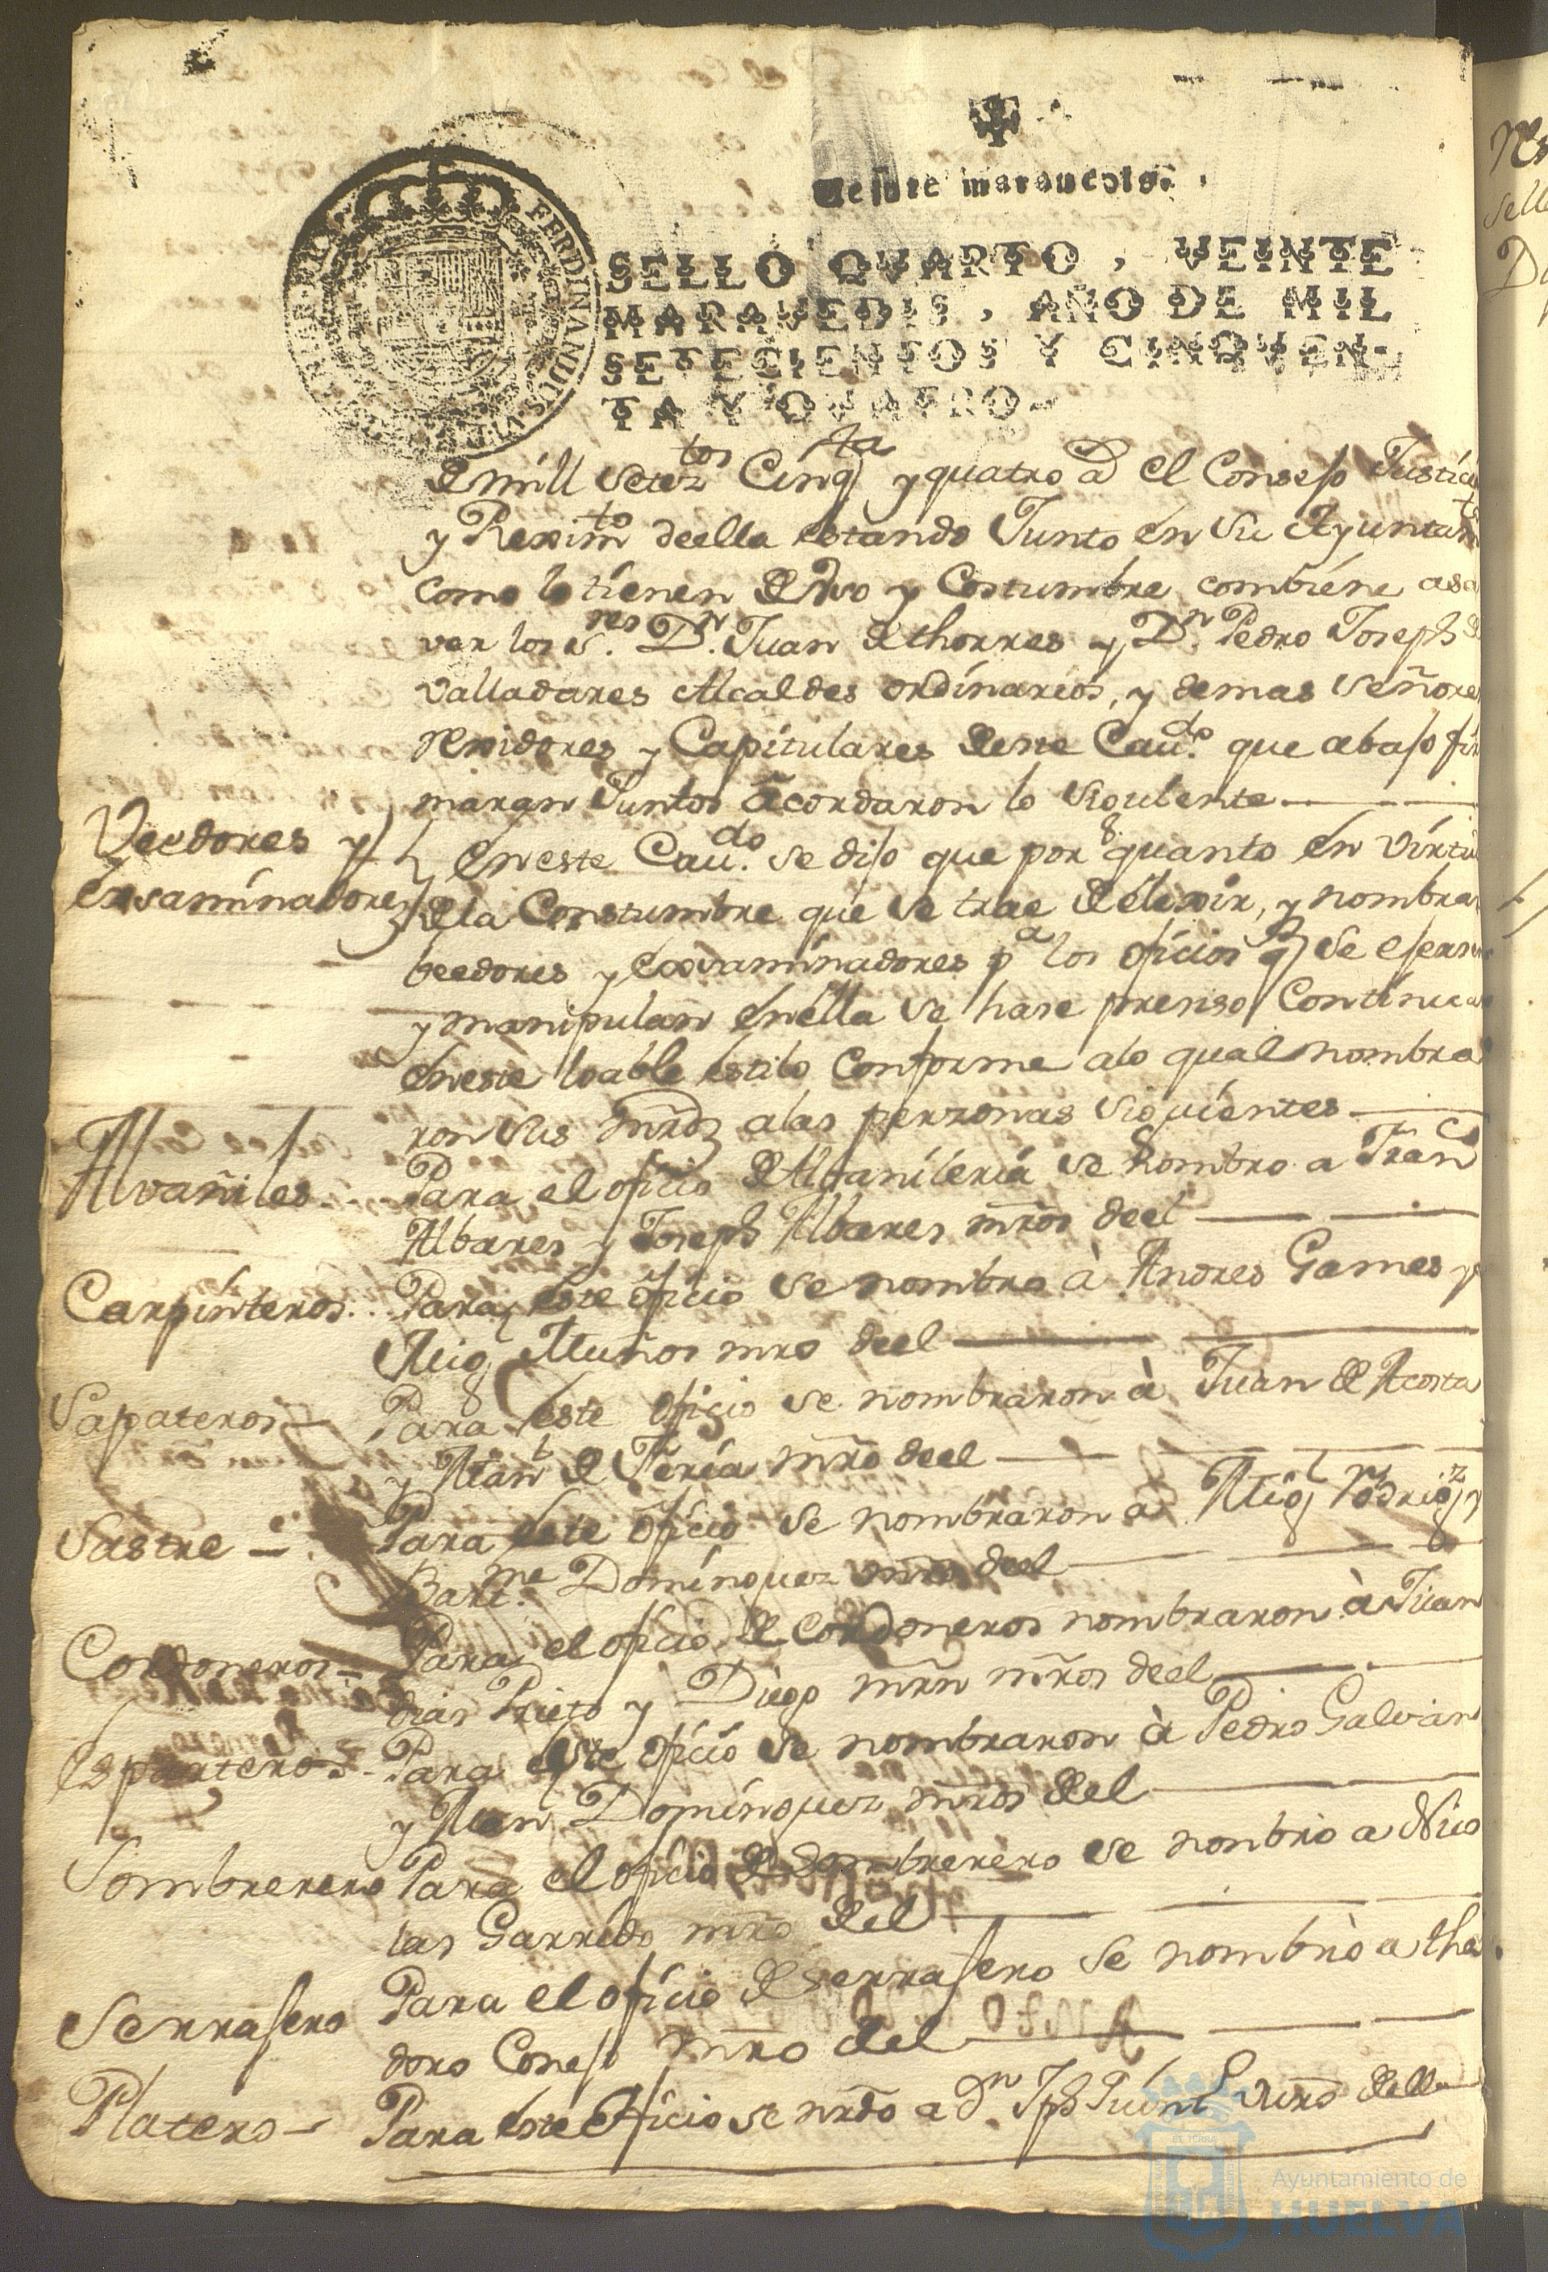 Veinte maravedis.
SELLO QVARTO, VEINTE
MARAVEDIS, AÑO DE MIL
SETECIENTOS Y CINQVEN-
TA Y QVATRO-
FERDINANDUS VI
de mill setez.tos Cinq.ta y quatro as el Consejo Justicia
y Reximto deella estando Junto en su Ayuntamto
como lo tienen de uso y Costumbre combiene asa
ver los s.res Dn. Juan de thorres y Dn. Pedro Joseph de
valladares Alcaldes ordinarios, y demas señores
rexidores y Capitulares deese Cau.do que abajo fir
maran Juntos acordaron lo siguiente
Veedores y
Exsaminadores
en este Cau.do se dijo que por quanto en virtu
de la Constumbre que se trae de elexir, y nombrar
beedores y exsaminadores pa los oficios q se ejersen
y manipulan en ella se hase presiso Continuar
en este loable estilo Conforme alo qual nombra
ron sus mrdz a las perzonas siguientes
Alvañiles
Para el oficio de Albanileria se nombro a Franco
Albares y Joseph Albares mros deel
Carpinteros
Para este oficio se nombro à Andres Games y
Mig Muños mro deel
Sapateros
Para este oficio se nombraron à Juan de Acosta
y Manl de Feria mro deel
Sastre
Para este oficio se nombraron a Migl Rodrigz y
Bart.me Dominguez mros deel
Cordoneros
Para el oficio de cordoneros nombraron à Juan
dias Prieto y Diego mrn mros deel
Esparteros
Para este oficio se nombraron à Pedro Galvan
y Juan Dominguez mros del
Sombrerero
Para el oficio de Sombrerero se nonbrò a Nico
las Garrido mro del
Serrajero
Para el oficio de serrajero se nombrò a theo
doro Conejo mro del
Platero
Para este Oficio se nrdo a dn. Jph Quint vzno dell
Ayuntamiento de
HUELVA